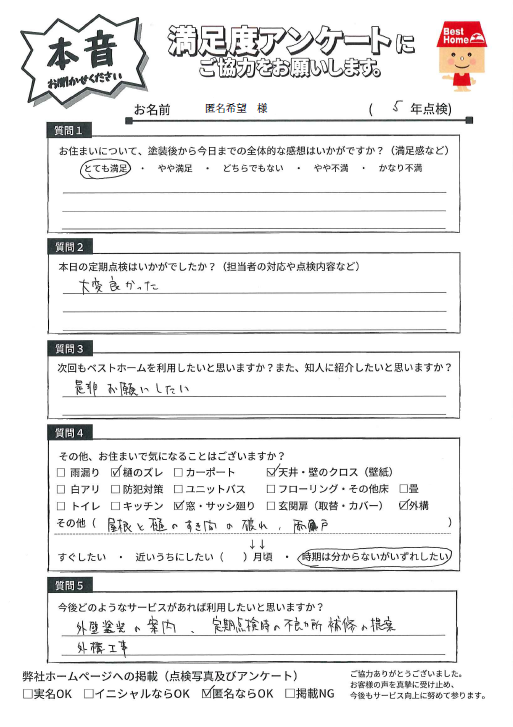 本音
お聞かせください
満足度アンケートに
ご協力をお願いします。
Best
Home
お名前 匿名希望 様 ( 5 年点検)
質問1
お住まいについて、塗装後から今日までの全体的な感想はいかがですか?(満足感など)
とても満足 ・ やや満足 ・ どちらでもない ・ やや不満 ・ かなり不満
質問2
本日の定期点検はいかがでしたか?(担当者の対応や点検内容など)
大変良かった
質問3
次回もベストホームを利用したいと思いますか?また、知人に紹介したいと思いますか?
是非お願いしたい
質問4
その他、お住まいで気になることはございますか?
□ 雨漏り ☑樋のズレ □ カーポート ☑天井・壁のクロス(壁紙)
□ 白アリ □ 防犯対策 □ ユニットバス □ フローリング・その他床 □畳
□ トイレ □ キッチン ☑窓・サッシ廻り □ 玄関扉(取替・カバー) ☑外構
その他( 屋根と樋のすき間の破れ、雨戸 )
↓↓
すぐしたい ・ 近いうちにしたい( )月頃 ・ 時期は分からないがいずれしたい
質問5
今後どのようなサービスがあれば利用したいと思いますか?
外壁塗装の案内、定期点検時の不良か所補修の提案
外構工事
弊社ホームページへの掲載(点検写真及びアンケート)
□実名OK □イニシャルならOK ☑匿名ならOK □掲載NG
ご協力ありがとうございました。
お客様の声を真摯に受け止め、
今後もサービス向上に努めて参ります。